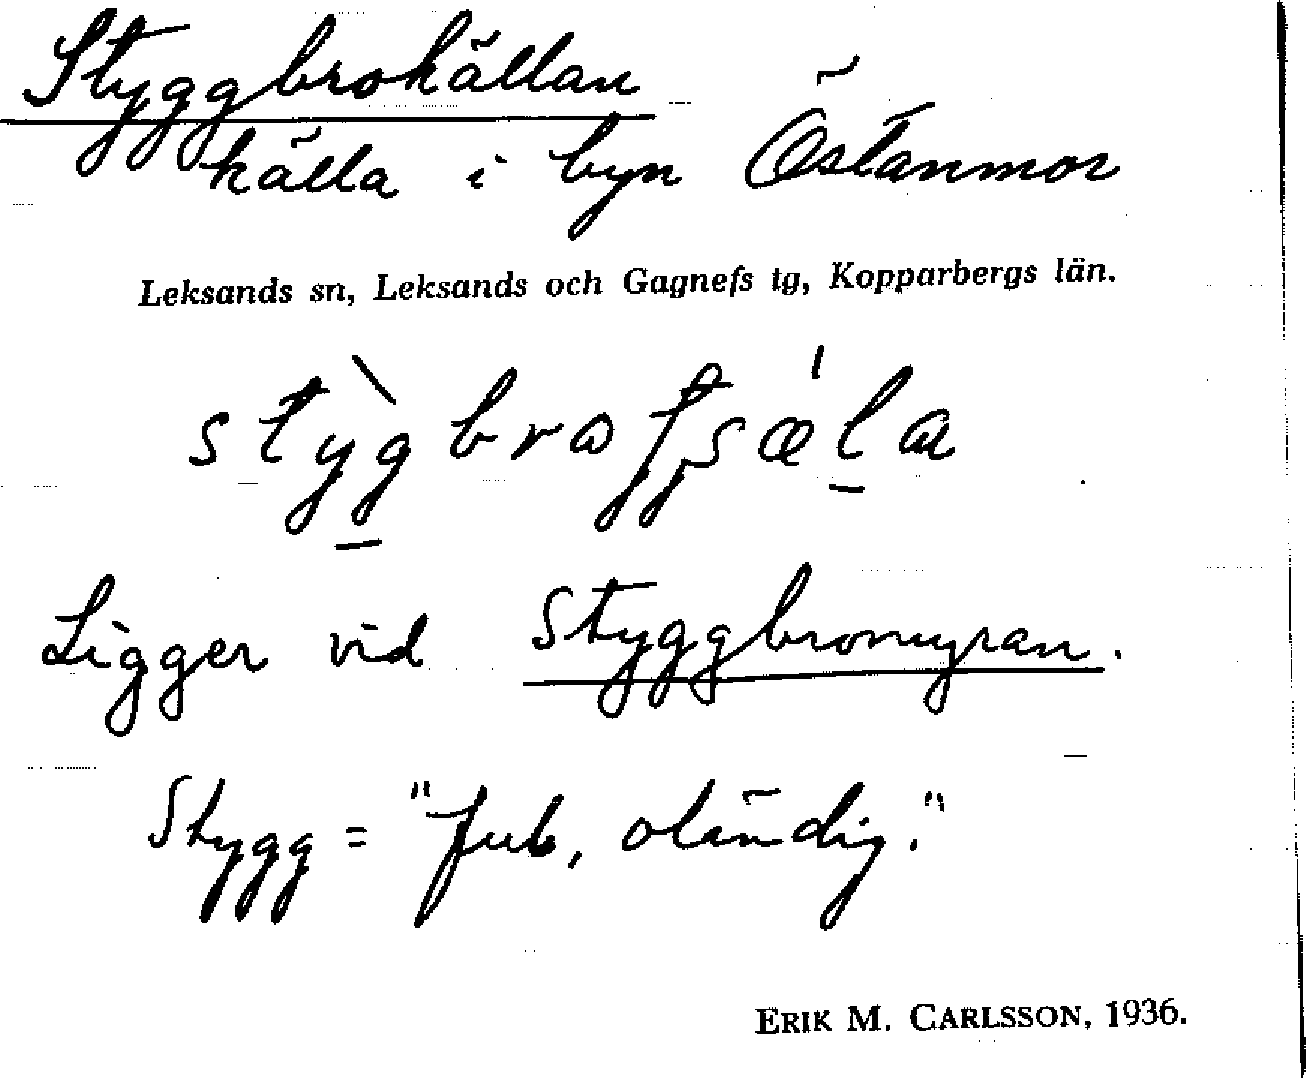 Styggbrokällan
källa i byn Östanmor
Leksands sn, Leksands och Gagnefs tg, Kopparbergs län.
Ligger vid Styggbromyran.
Stygg = "ful, oländig."
ERIK M. CARLSSON, 1936.